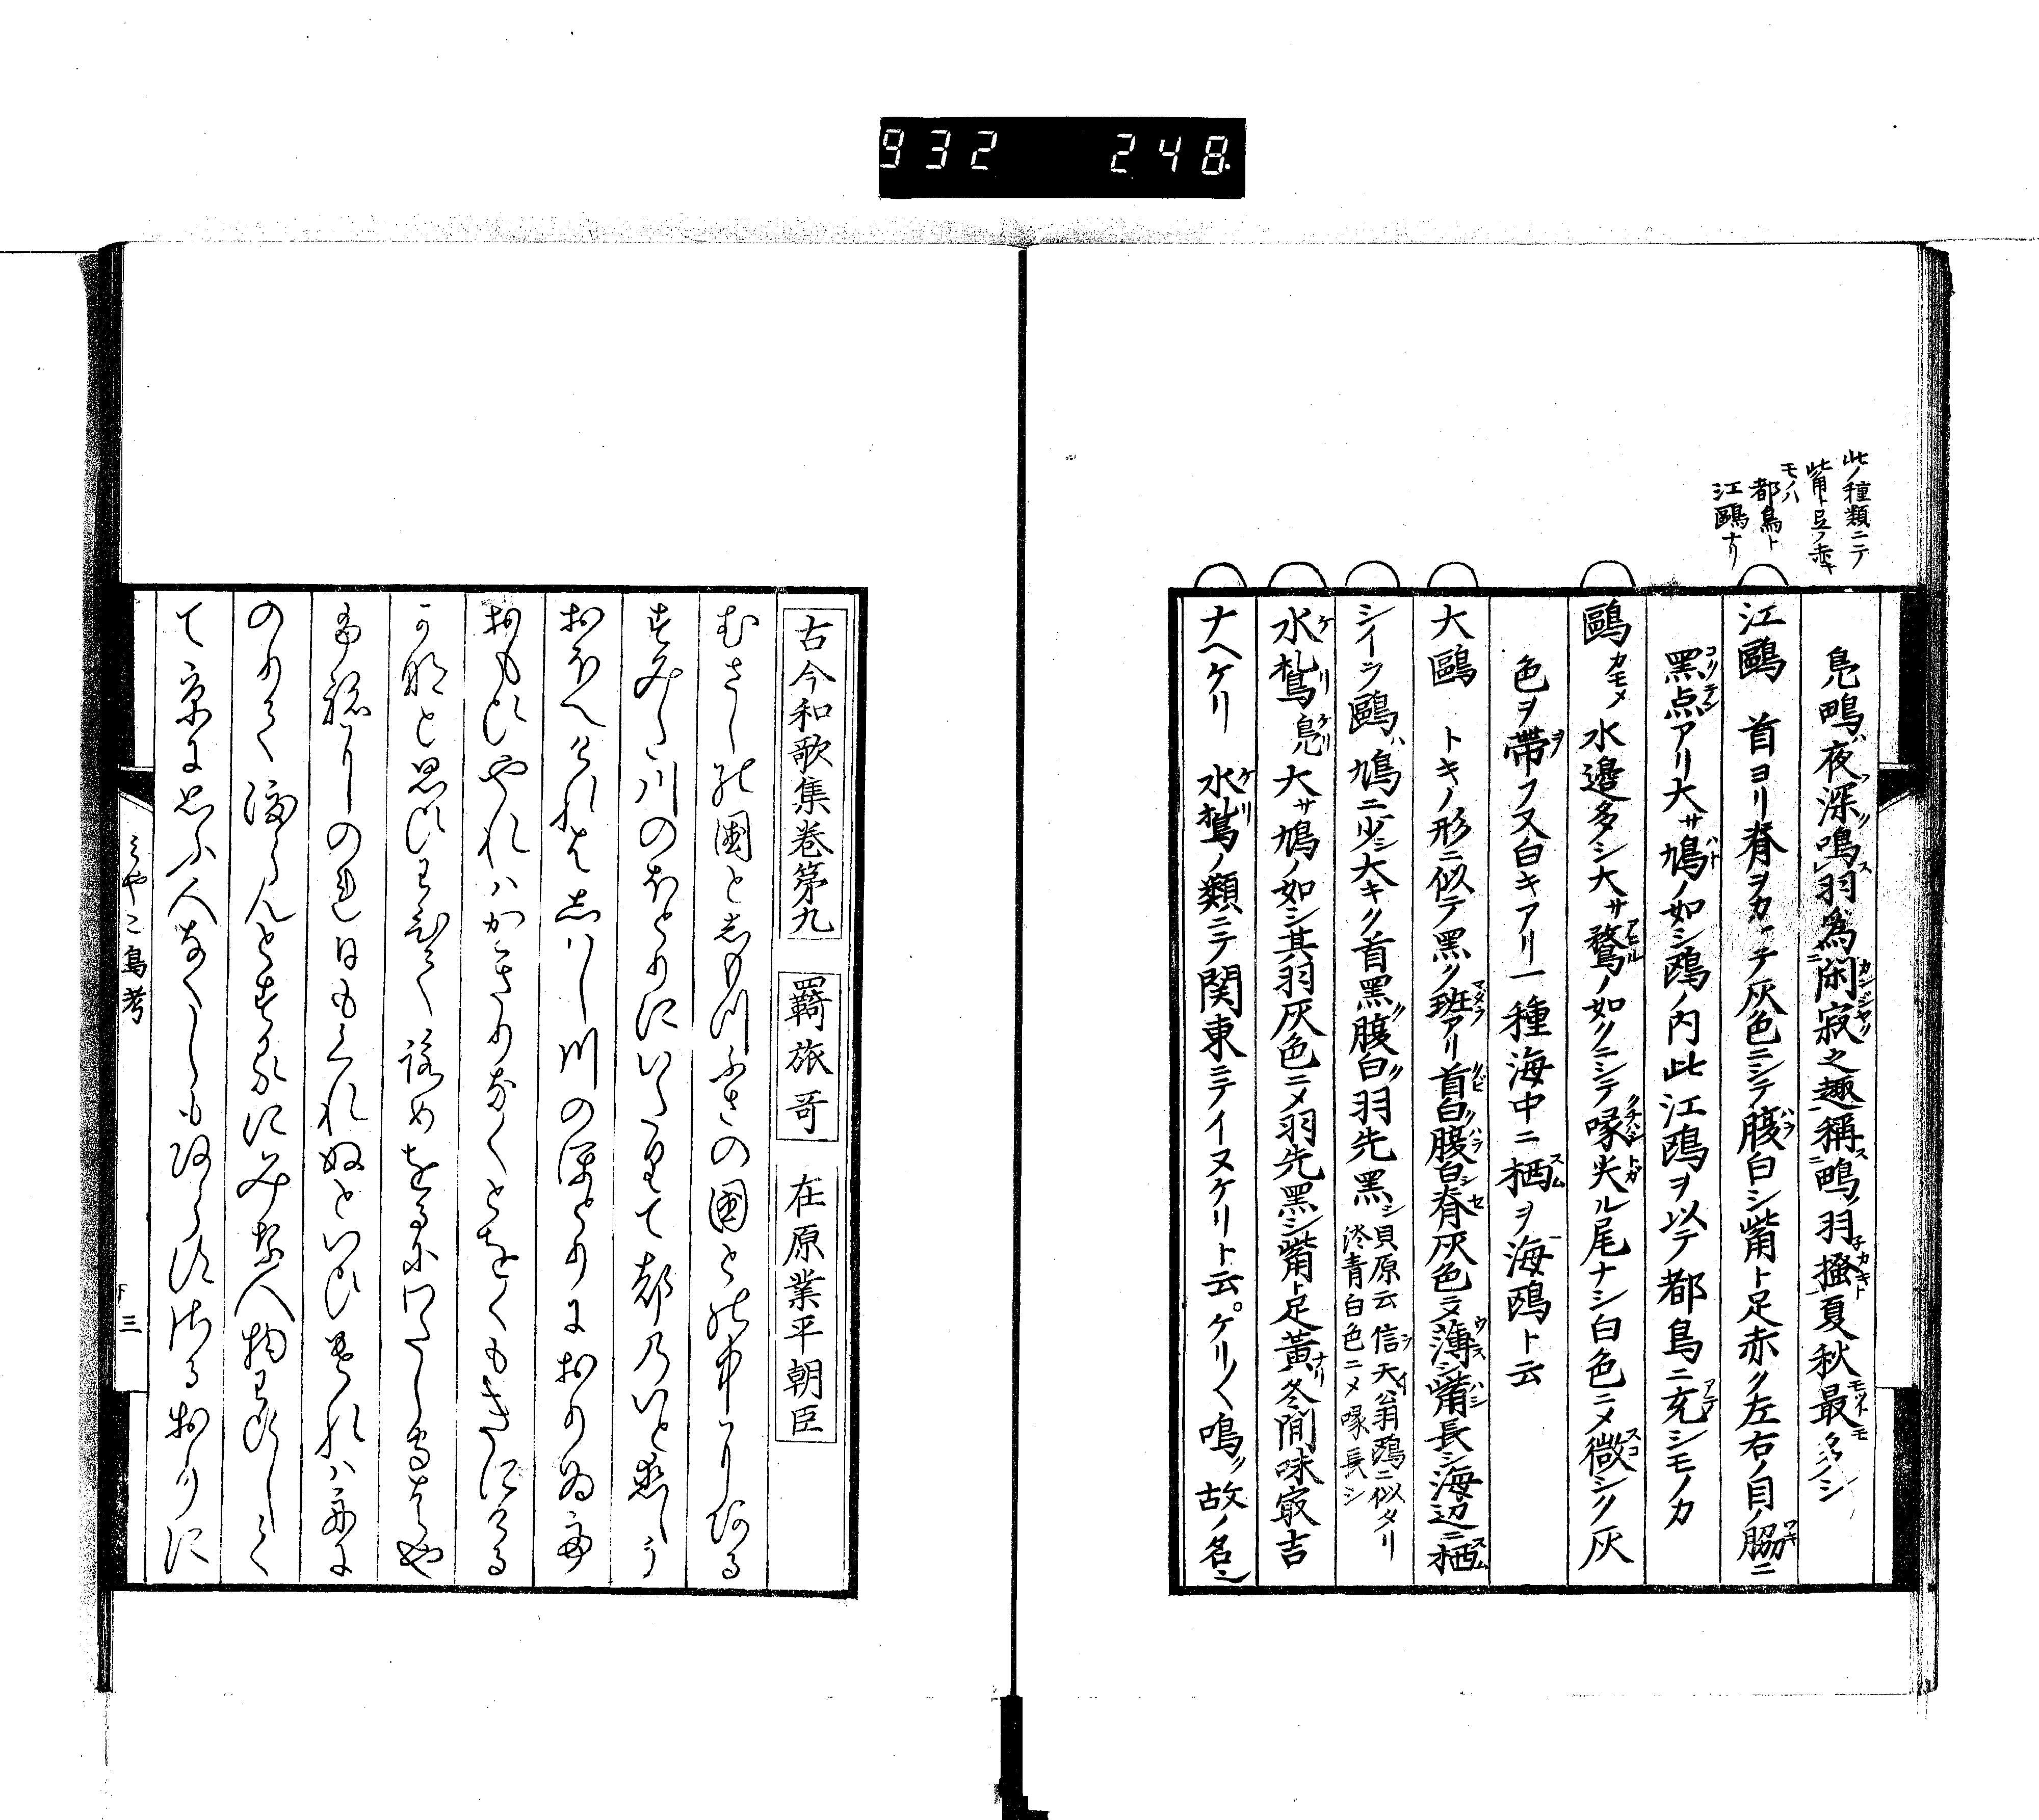 932 248
此ノ種類ニテ
觜ト足ノ赤キ
モノハ
都鳥ト
江鷗ナリ
鳧鴫ハ夜深ク鳴ス羽為ニ閑寂之趣稱ス鴫ノ羽搔ト夏秋最多シ
江鷗 首ヨリ脊ヲカケテ灰色ニシテ腹白シ觜ト足赤ク左右ノ目ノ脇ニ
黑点アリ大サ鳩ノ如シ鴎ノ内此江鴎ヲ以テ都鳥ニ充シモノカ
鷗 カモメ 水邊多シ大サ鶩ノ如クニシテ喙尖ル尾ナシ白色ニメ微シク灰
色ヲ帶フ又白キアリ一種海中ニ栖ヲ海鴎ト云
大鷗 トキノ形ニ似テ黑ク班アリ首白ク腹白シ脊灰色ニメ薄シ觜長シ海辺ニ栖
シイラ鷗ハ鳩ニ少シ大キク首黑ク腹白ク羽先黑シ 貝原云信天翁鴎ニ似タリ
淡青白色ニメ喙長シ
水鳧 大サ鳩ノ如シ其羽灰色ニメ羽先黑シ觜ト足黃ナリ冬間味㝡吉
ナヘケリ 水ノ類ニテ関東ニテイヌケリト云。ケリ〱鳴ク故ノ名也
古今和歌集巻第九 羇旅哥 在原業平朝臣
むさしの國としもつふさの國との中にある
すみた川のほとりにいたりて都のいと恋しう
おほへけれはしはし川のほとりにおりゐて
おもひやれハかきりなくとをくもきにける
かなと思ひわひて詠めをるにわたし守はや
舟にのれ日もくれぬといひけれハ舟に
のりて渡らんとするにみな人物わひしくて
て京に思ふ人なくしもあらすさるおりに
みやこ鳥考
下 三